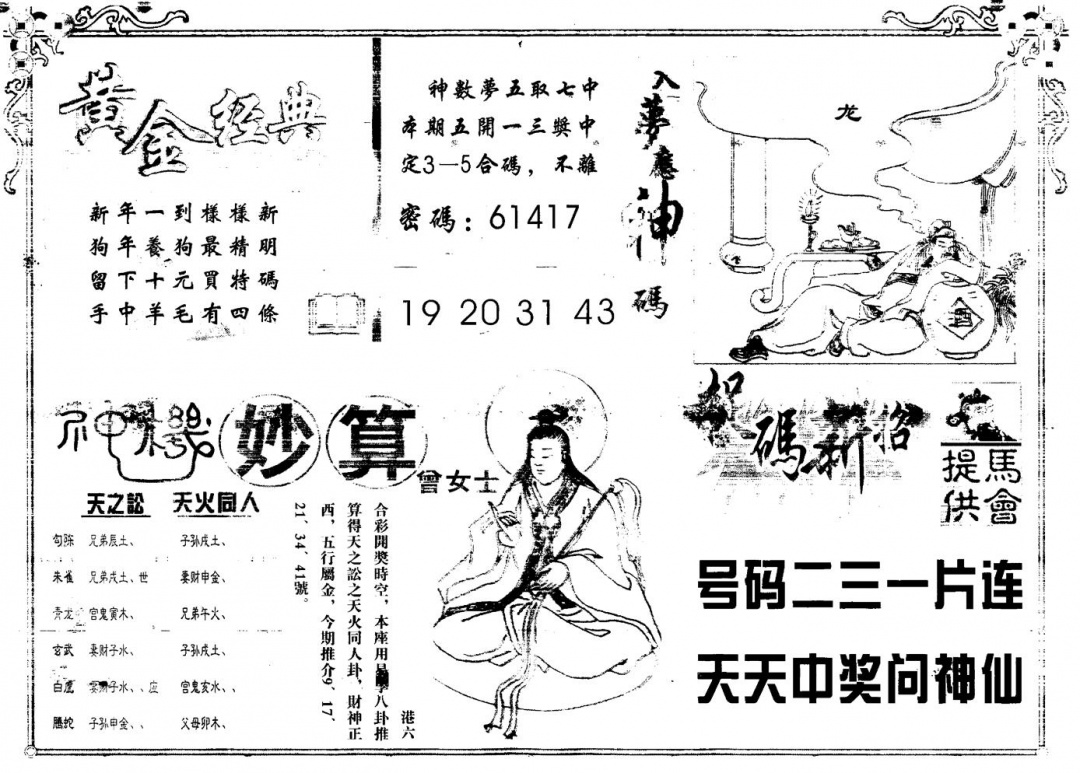 黄金经典
新年一到樣樣新
狗年養狗最精明
留下十元買特碼
手中羊毛有四條
神數夢五取七中
本期五開一三獎中
定3—5合碼，不離
密碼：61417
19 20 31 43
入夢應神碼
龙
酒
神機妙算
曾女士
天之訟 天火同人
勾陈 兄弟辰土、 子孙戌土、
朱雀 兄弟戌土、世 妻财申金、
青龙 官鬼寅木、 兄弟午火、
玄武 妻财子水、 子孙戌土、
白虎 妻财子水、、应 官鬼亥水、、
腾蛇 子孙申金、、 父母卯木、
港六
合彩開獎時空，本座用八卦推
算得天之訟之天火同人卦，財神正
西，五行屬金，今期推介9、17、
21、34、41號。
碼新
馬會
提供
号码二三一片连
天天中奖问神仙